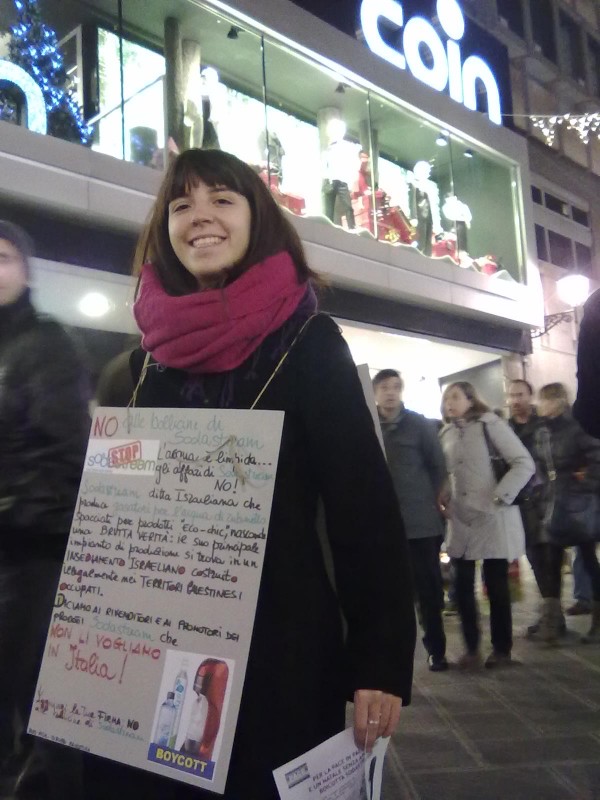 coin
NO alle bollicine di
Sodastream
STOP
sodastream
L'acqua è limpida...
gli affari di Sodastream
NO!
Sodastream ditta Israeliana che
produce gasatori per l'acqua di rubinetto
spacciati per prodotti "eco-chic", nasconde
una BRUTTA VERITÀ: il suo principale
impianto di produzione si trova in un
INSEDIAMENTO ISRAELIANO costruito
illegalmente nei TERRITORI PALESTINESI
OCCUPATI.
DICIAMO AI RIVENDITORI E AI PROMOTORI DEI
PRODOTTI Sodastream che
NON LI VOGLIAMO
IN Italia!
la tua FIRMA NO
alle bollicine di Sodastream
BOYCOTT
PER LA PACE IN
E UN NATALE SENZA
BOICOTTA